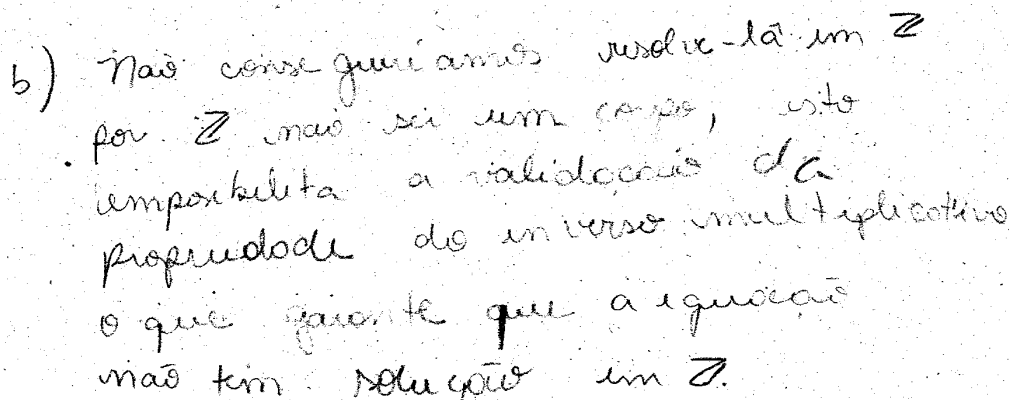 b) Não conseguiriamos resolve-lã em Z
por Z não sei um corpo, isto
impossibilita a validação da
propriedade do inverso multiplicativo
o que garante que a equação
não tem solução em Z.